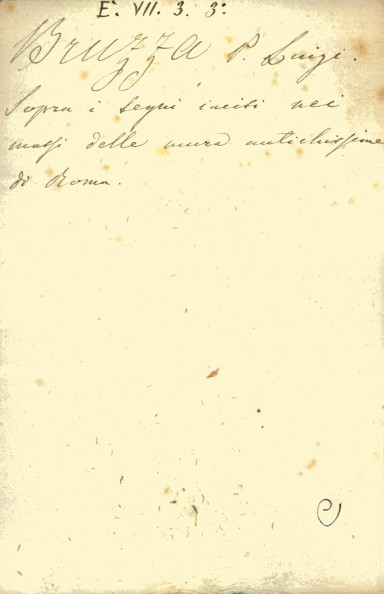 E. VII. 3. 3.
Bruzza P. Luigi.
Sopra i segni incisi nei
massi delle mura antichissime
di Roma.